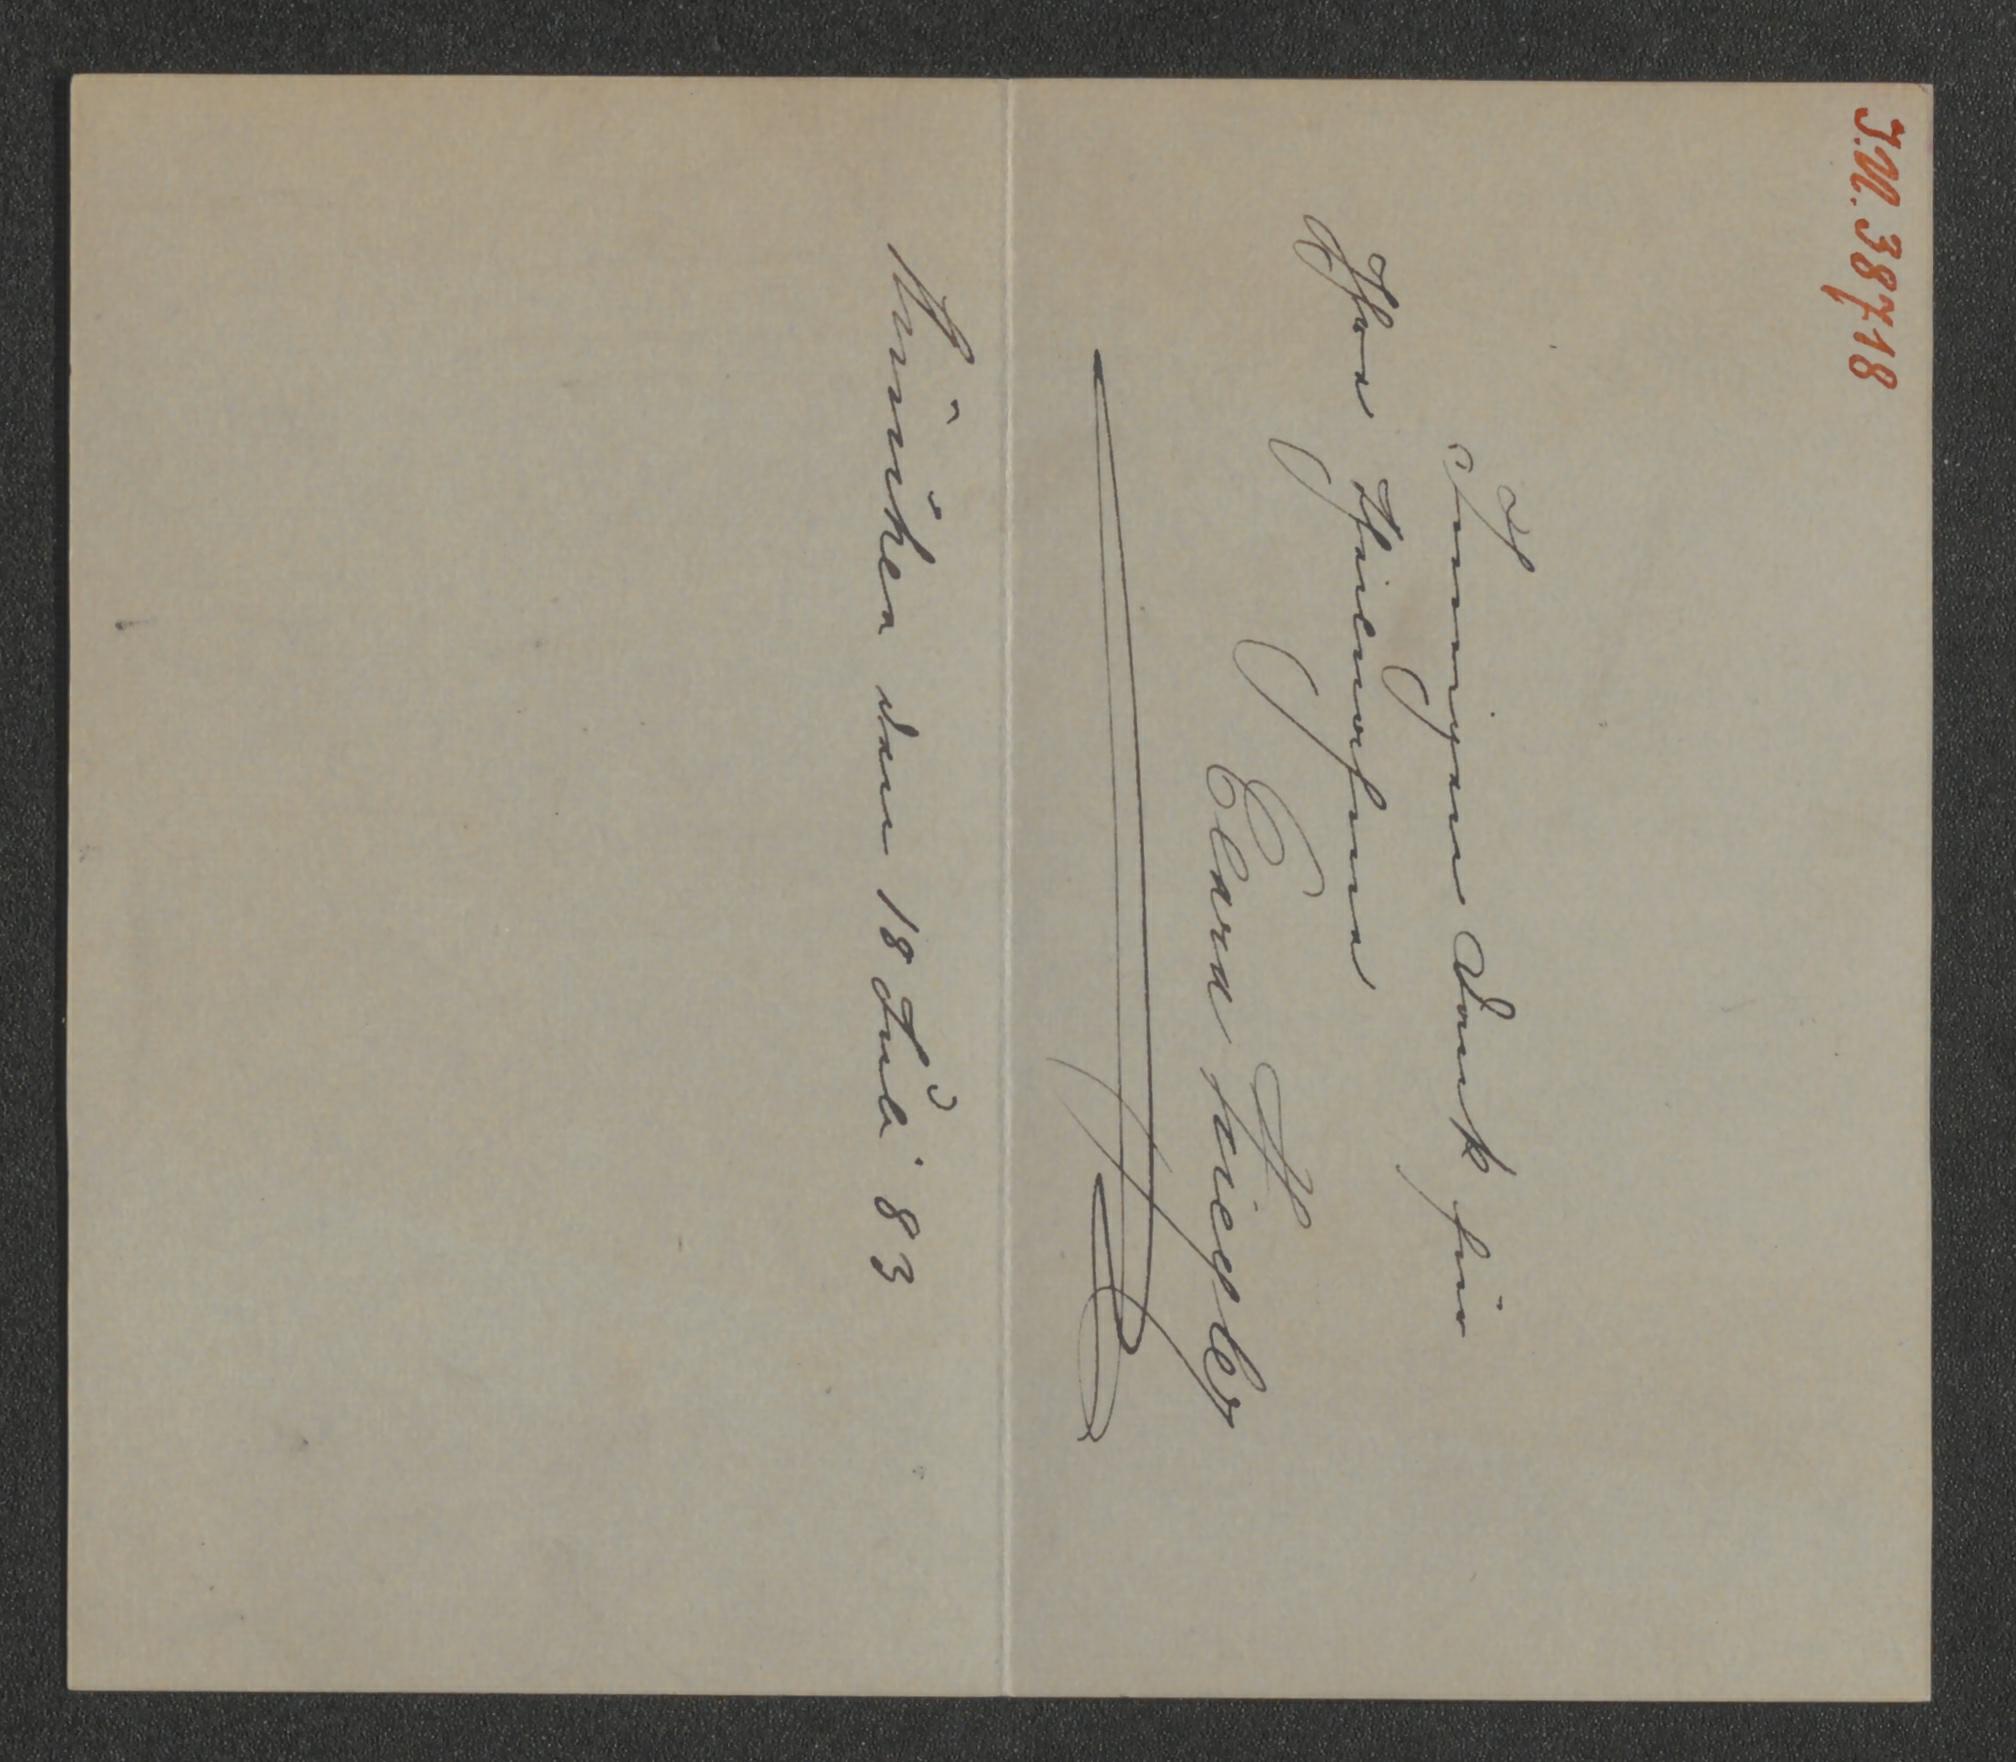 I.N. 38718
Innigen Dank für
Ihre Theilnahme
Clara Ziegler
München den 18 Juli 83